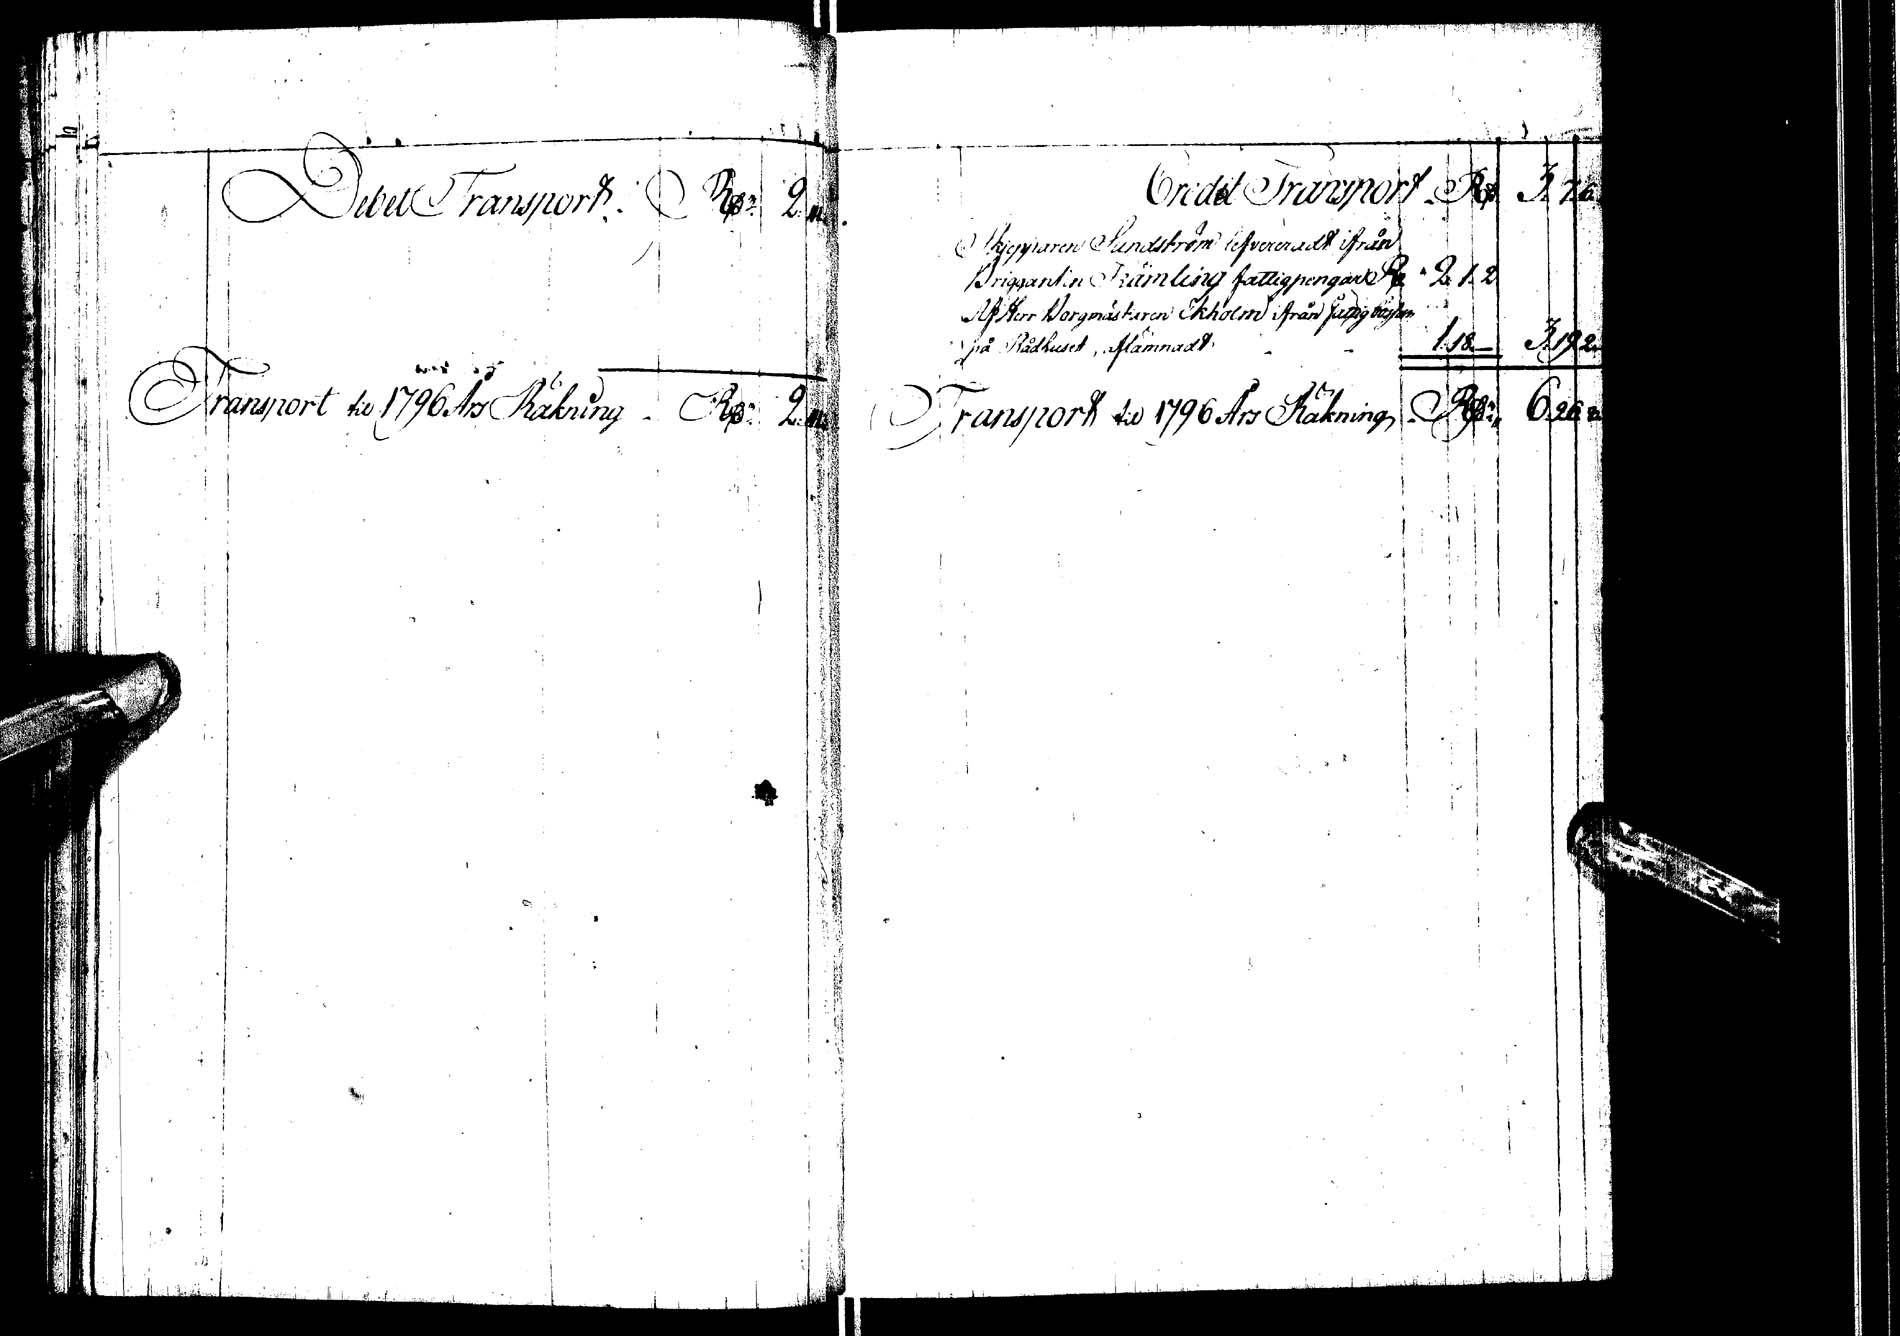 Debet Transport. Rd 2.
Transport til 1796 Års Räkning Rd 2.
Credit Transport Rd 3. 7. 6.
Skepparen Sundström lefvereradt ifrån
Briggantin Främling fattigpengar Rd 2. 1. 2
Af Herr Borgmästaren Ekholm ifrån
på Rådhuset, aflämnadt. 1. 18. — 3. 19. 2.
Transport til 1796 Års Räkning Rd 6. 26.